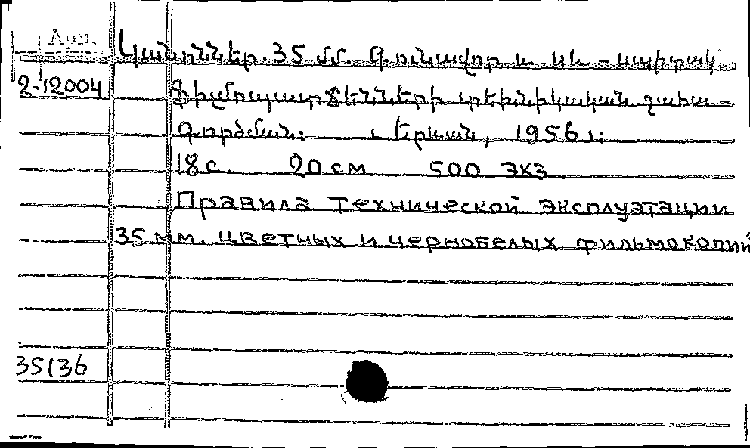 Հայ.
Կանոններ. 35 մմ. գունավոր և սև-սպիտակ
2-12004
ֆիլմոպատճենների տեխնիկական շահա-
գործման: Երևան, 1956 թ.:
18 с. 20 см 500 экз
Правила технической эксплуатации
35 мм. цветных и чернобелых фильмокопий
35136